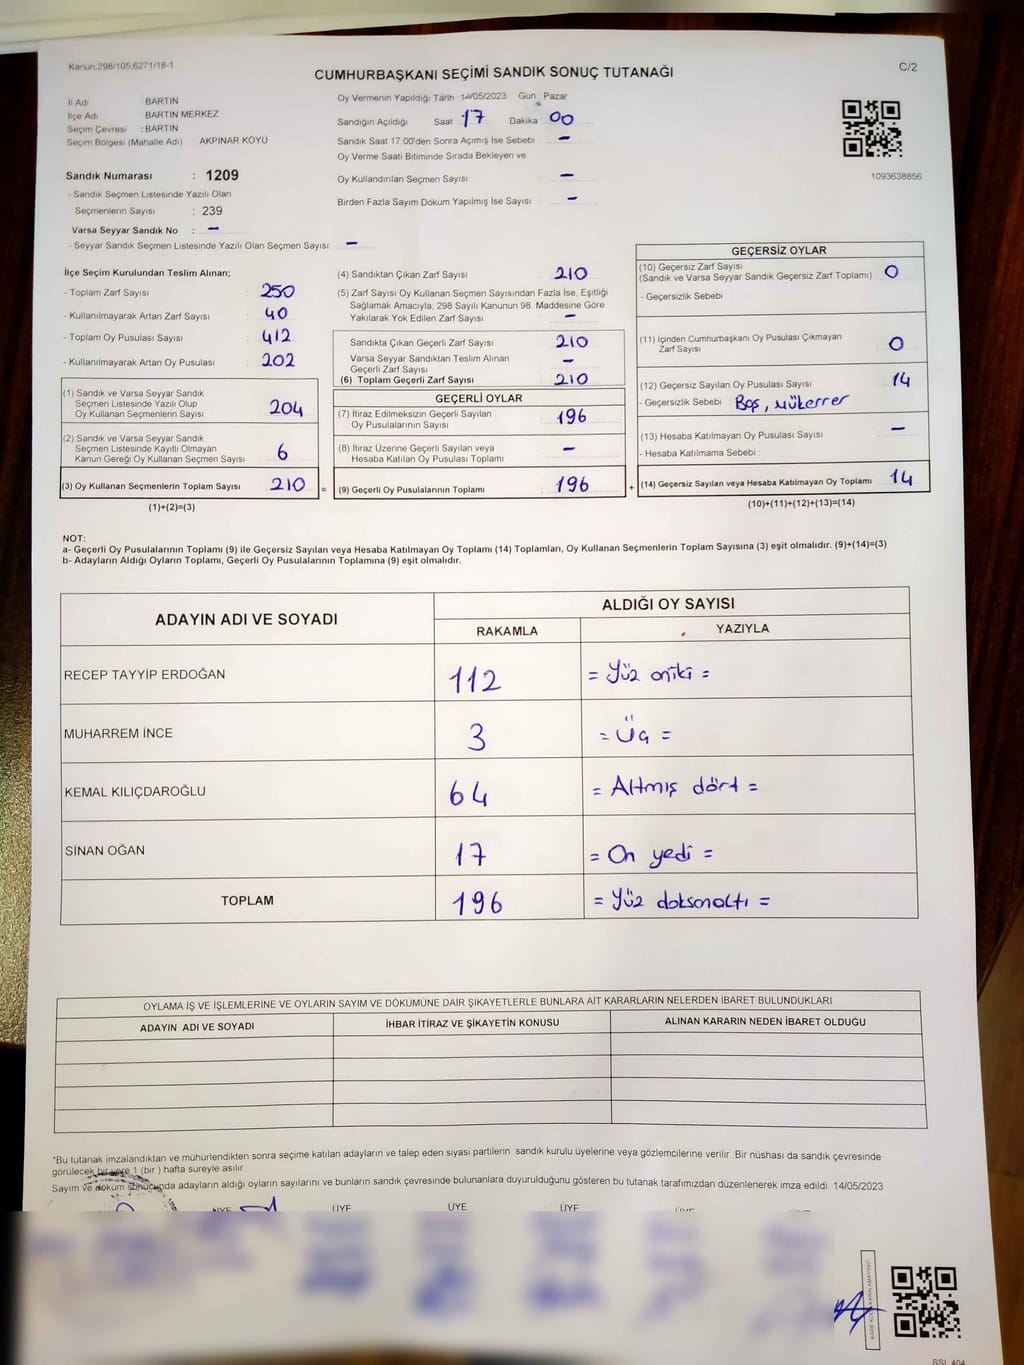 Kanun:298/105;6271/18-1
C/2
CUMHURBAŞKANI SEÇİMİ SANDIK SONUÇ TUTANAĞI
İl Adı BARTIN
İlçe Adı BARTIN MERKEZ
Seçim Çevresi : BARTIN
Seçim Bölgesi (Mahalle Adı) AKPINAR KÖYÜ
Sandık Numarası : 1209
- Sandık Seçmen Listesinde Yazılı Olan
Seçmenlerin Sayısı : 239
Varsa Seyyar Sandık No : –
- Seyyar Sandık Seçmen Listesinde Yazılı Olan Seçmen Sayısı : –
Oy Vermenin Yapıldığı Tarih :14/05/2023 Gün : Pazar
Sandığın Açıldığı Saat 17 Dakika 00
Sandık Saat 17:00'den Sonra Açımış İse Sebebi : –
Oy Verme Saati Bitiminde Sırada Bekleyen ve
Oy Kullandırılan Seçmen Sayısı : –
Birden Fazla Sayım Döküm Yapılmış İse Sayısı : –
1093638856
İlçe Seçim Kurulundan Teslim Alınan;
- Toplam Zarf Sayısı : 250
- Kullanılmayarak Artan Zarf Sayısı : 40
- Toplam Oy Pusulası Sayısı : 412
- Kullanılmayarak Artan Oy Pusulası : 202
(1) Sandık ve Varsa Seyyar Sandık
Seçmen Listesinde Yazılı Olup
Oy Kullanan Seçmenlerin Sayısı : 204
(2) Sandık ve Varsa Seyyar Sandık
Seçmen Listesinde Kayıtlı Olmayan
Kanun Gereği Oy Kullanan Seçmen Sayısı : 6
(3) Oy Kullanan Seçmenlerin Toplam Sayısı : 210
(1)+(2)=(3)
(4) Sandıktan Çıkan Zarf Sayısı : 210
(5) Zarf Sayısı Oy Kullanan Seçmen Sayısından Fazla İse, Eşitliği
Sağlamak Amacıyla; 298 Sayılı Kanunun 98. Maddesine Göre
Yakılarak Yok Edilen Zarf Sayısı : –
Sandıkta Çıkan Geçerli Zarf Sayısı : 210
Varsa Seyyar Sandıktan Teslim Alınan
Geçerli Zarf Sayısı : –
(6) Toplam Geçerli Zarf Sayısı : 210
GEÇERLİ OYLAR
(7) İtiraz Edilmeksizin Geçerli Sayılan
Oy Pusulalarının Sayısı : 196
(8) İtiraz Üzerine Geçerli Sayılan veya
Hesaba Katılan Oy Pusulası Toplamı : –
= (9) Geçerli Oy Pusulalarının Toplamı : 196
GEÇERSİZ OYLAR
(10) Geçersiz Zarf Sayısı
(Sandık ve Varsa Seyyar Sandık Geçersiz Zarf Toplamı) : 0
- Geçersizlik Sebebi :
(11) İçinden Cumhurbaşkanı Oy Pusulası Çıkmayan
Zarf Sayısı : 0
(12) Geçersiz Sayılan Oy Pusulası Sayısı : 14
- Geçersizlik Sebebi : Boş, Mükerrer
(13) Hesaba Katılmayan Oy Pusulası Sayısı : –
- Hesaba Katılmama Sebebi :
+ (14) Geçersiz Sayılan veya Hesaba Katılmayan Oy Toplamı : 14
(10)+(11)+(12)+(13)=(14)
NOT:
a- Geçerli Oy Pusulalarının Toplamı (9) ile Geçersiz Sayılan veya Hesaba Katılmayan Oy Toplamı (14) Toplamları, Oy Kullanan Seçmenlerin Toplam Sayısına (3) eşit olmalıdır. (9)+(14)=(3)
b- Adayların Aldığı Oyların Toplamı, Geçerli Oy Pusulalarının Toplamına (9) eşit olmalıdır.
ADAYIN ADI VE SOYADI ALDIĞI OY SAYISI
RAKAMLA YAZIYLA
RECEP TAYYİP ERDOĞAN 112 = Yüz oniki =
MUHARREM İNCE 3 = Üç =
KEMAL KILIÇDAROĞLU 64 = Altmış dört =
SİNAN OĞAN 17 = On yedi =
TOPLAM 196 = Yüz doksanaltı =
OYLAMA İŞ VE İŞLEMLERİNE VE OYLARIN SAYIM VE DÖKÜMÜNE DAİR ŞİKAYETLERLE BUNLARA AİT KARARLARIN NELERDEN İBARET BULUNDUKLARI
ADAYIN ADI VE SOYADI İHBAR İTİRAZ VE ŞİKAYETİN KONUSU ALINAN KARARIN NEDEN İBARET OLDUĞU
*Bu tutanak imzalandıktan ve mühürlendikten sonra seçime katılan adayların ve talep eden siyasi partilerin sandık kurulu üyelerine veya gözlemcilerine verilir. Bir nüshası da sandık çevresinde
görülecek bir yere 1 (bir ) hafta süreyle asılır.
Sayım ve döküm sonucunda adayların aldığı oyların sayılarını ve bunların sandık çevresinde bulunanlara duyurulduğunu gösteren bu tutanak tarafımızdan düzenlenerek imza edildi. 14/05/2023
ÜYE ÜYE ÜYE ÜYE ÜYE